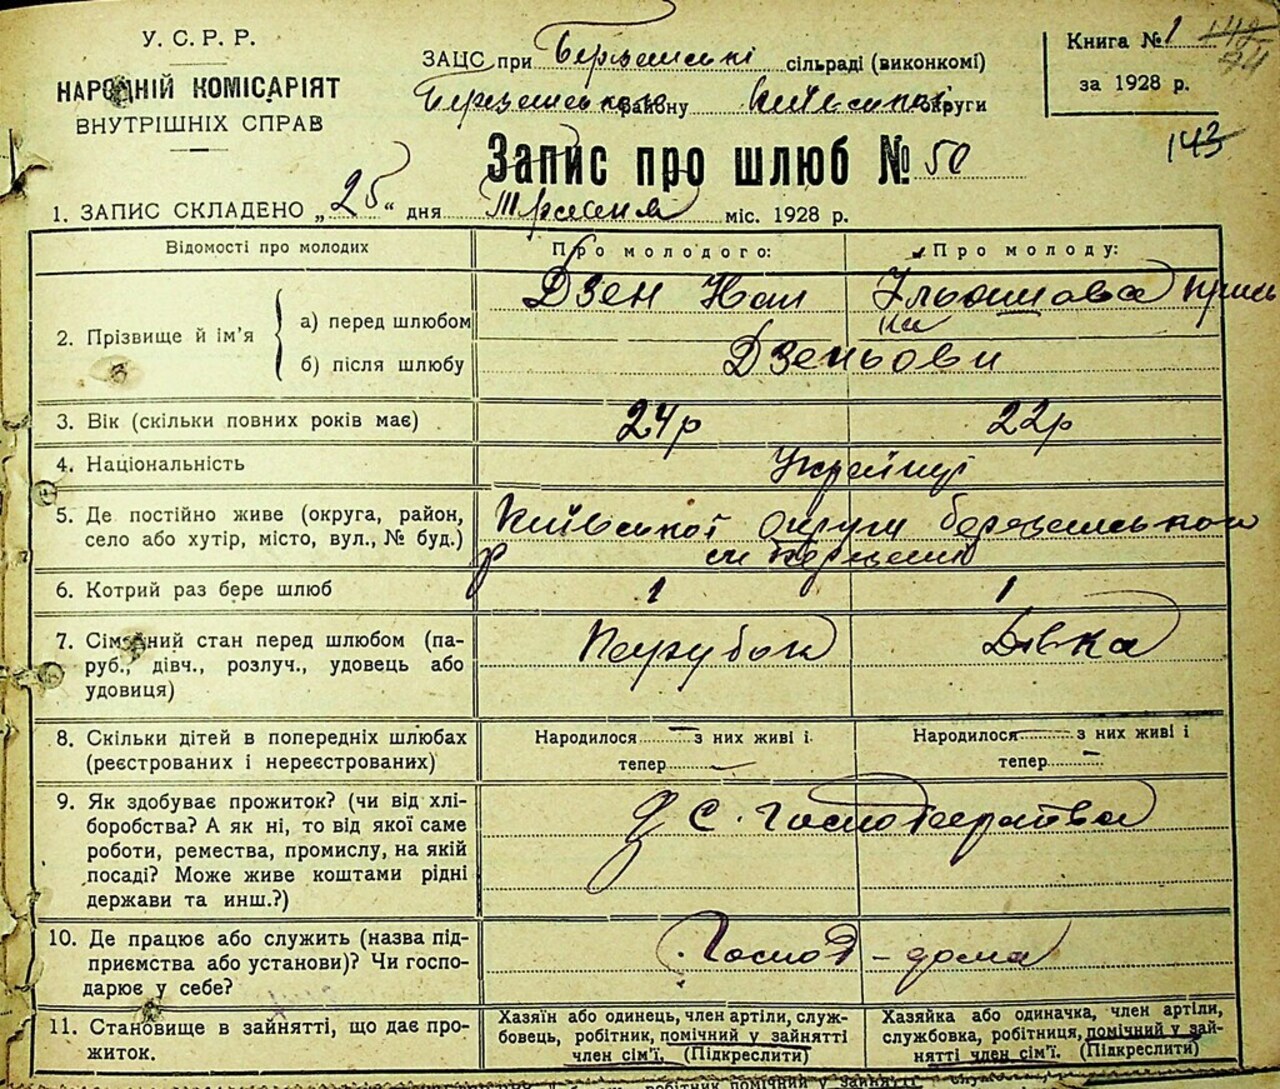 У. С. Р. Р.
НАРОДНІЙ КОМІСАРІЯТ
ВНУТРІШНІХ СПРАВ
ЗАЦС при сільраді (виконкомі)
району округи
Книга № 1
за 1928 р.
143
Запис про шлюб № 50
1. ЗАПИС СКЛАДЕНО „25“ дня Травня міс. 1928 р.
Відомості про молодих
Про молодого:
Про молоду:
2. Прізвище й ім’я
а) перед шлюбом
Дзен
б) після шлюбу
Дзеньови
3. Вік (скільки повних років має)
24р
22р
4. Національність
Українці
5. Де постійно живе (округа, район,
село або хутір, місто, вул., № буд.)
Київської округи
6. Котрий раз бере шлюб
1
1
7. Сімейний стан перед шлюбом (па-
руб., дівч., розлуч., удовець або
удовиця)
Парубок
Дівка
8. Скільки дітей в попередніх шлюбах
(реєстрованих і нереєстрованих)
Народилося – з них живі і
тепер –
Народилося – з них живі і
тепер –
9. Як здобуває прожиток? (чи від хлі-
боробства? А як ні, то від якої саме
роботи, ремества, промислу, на якій
посаді? Може живе коштами рідні
держави та инш.?)
с. господарства
10. Де працює або служить (назва під-
приємства або установи)? Чи госпо-
дарює у себе?
Господ - дома
11. Становище в зайнятті, що дає про-
житок.
Хазяїн або одинець, член артіли, служ-
бовець, робітник, помічний у зайнятті
член сім’ї. (Підкреслити)
Хазяйка або одиначка, член артіли,
службовка, робітниця, помічний у зай-
нятті член сім’ї. (Підкреслити)